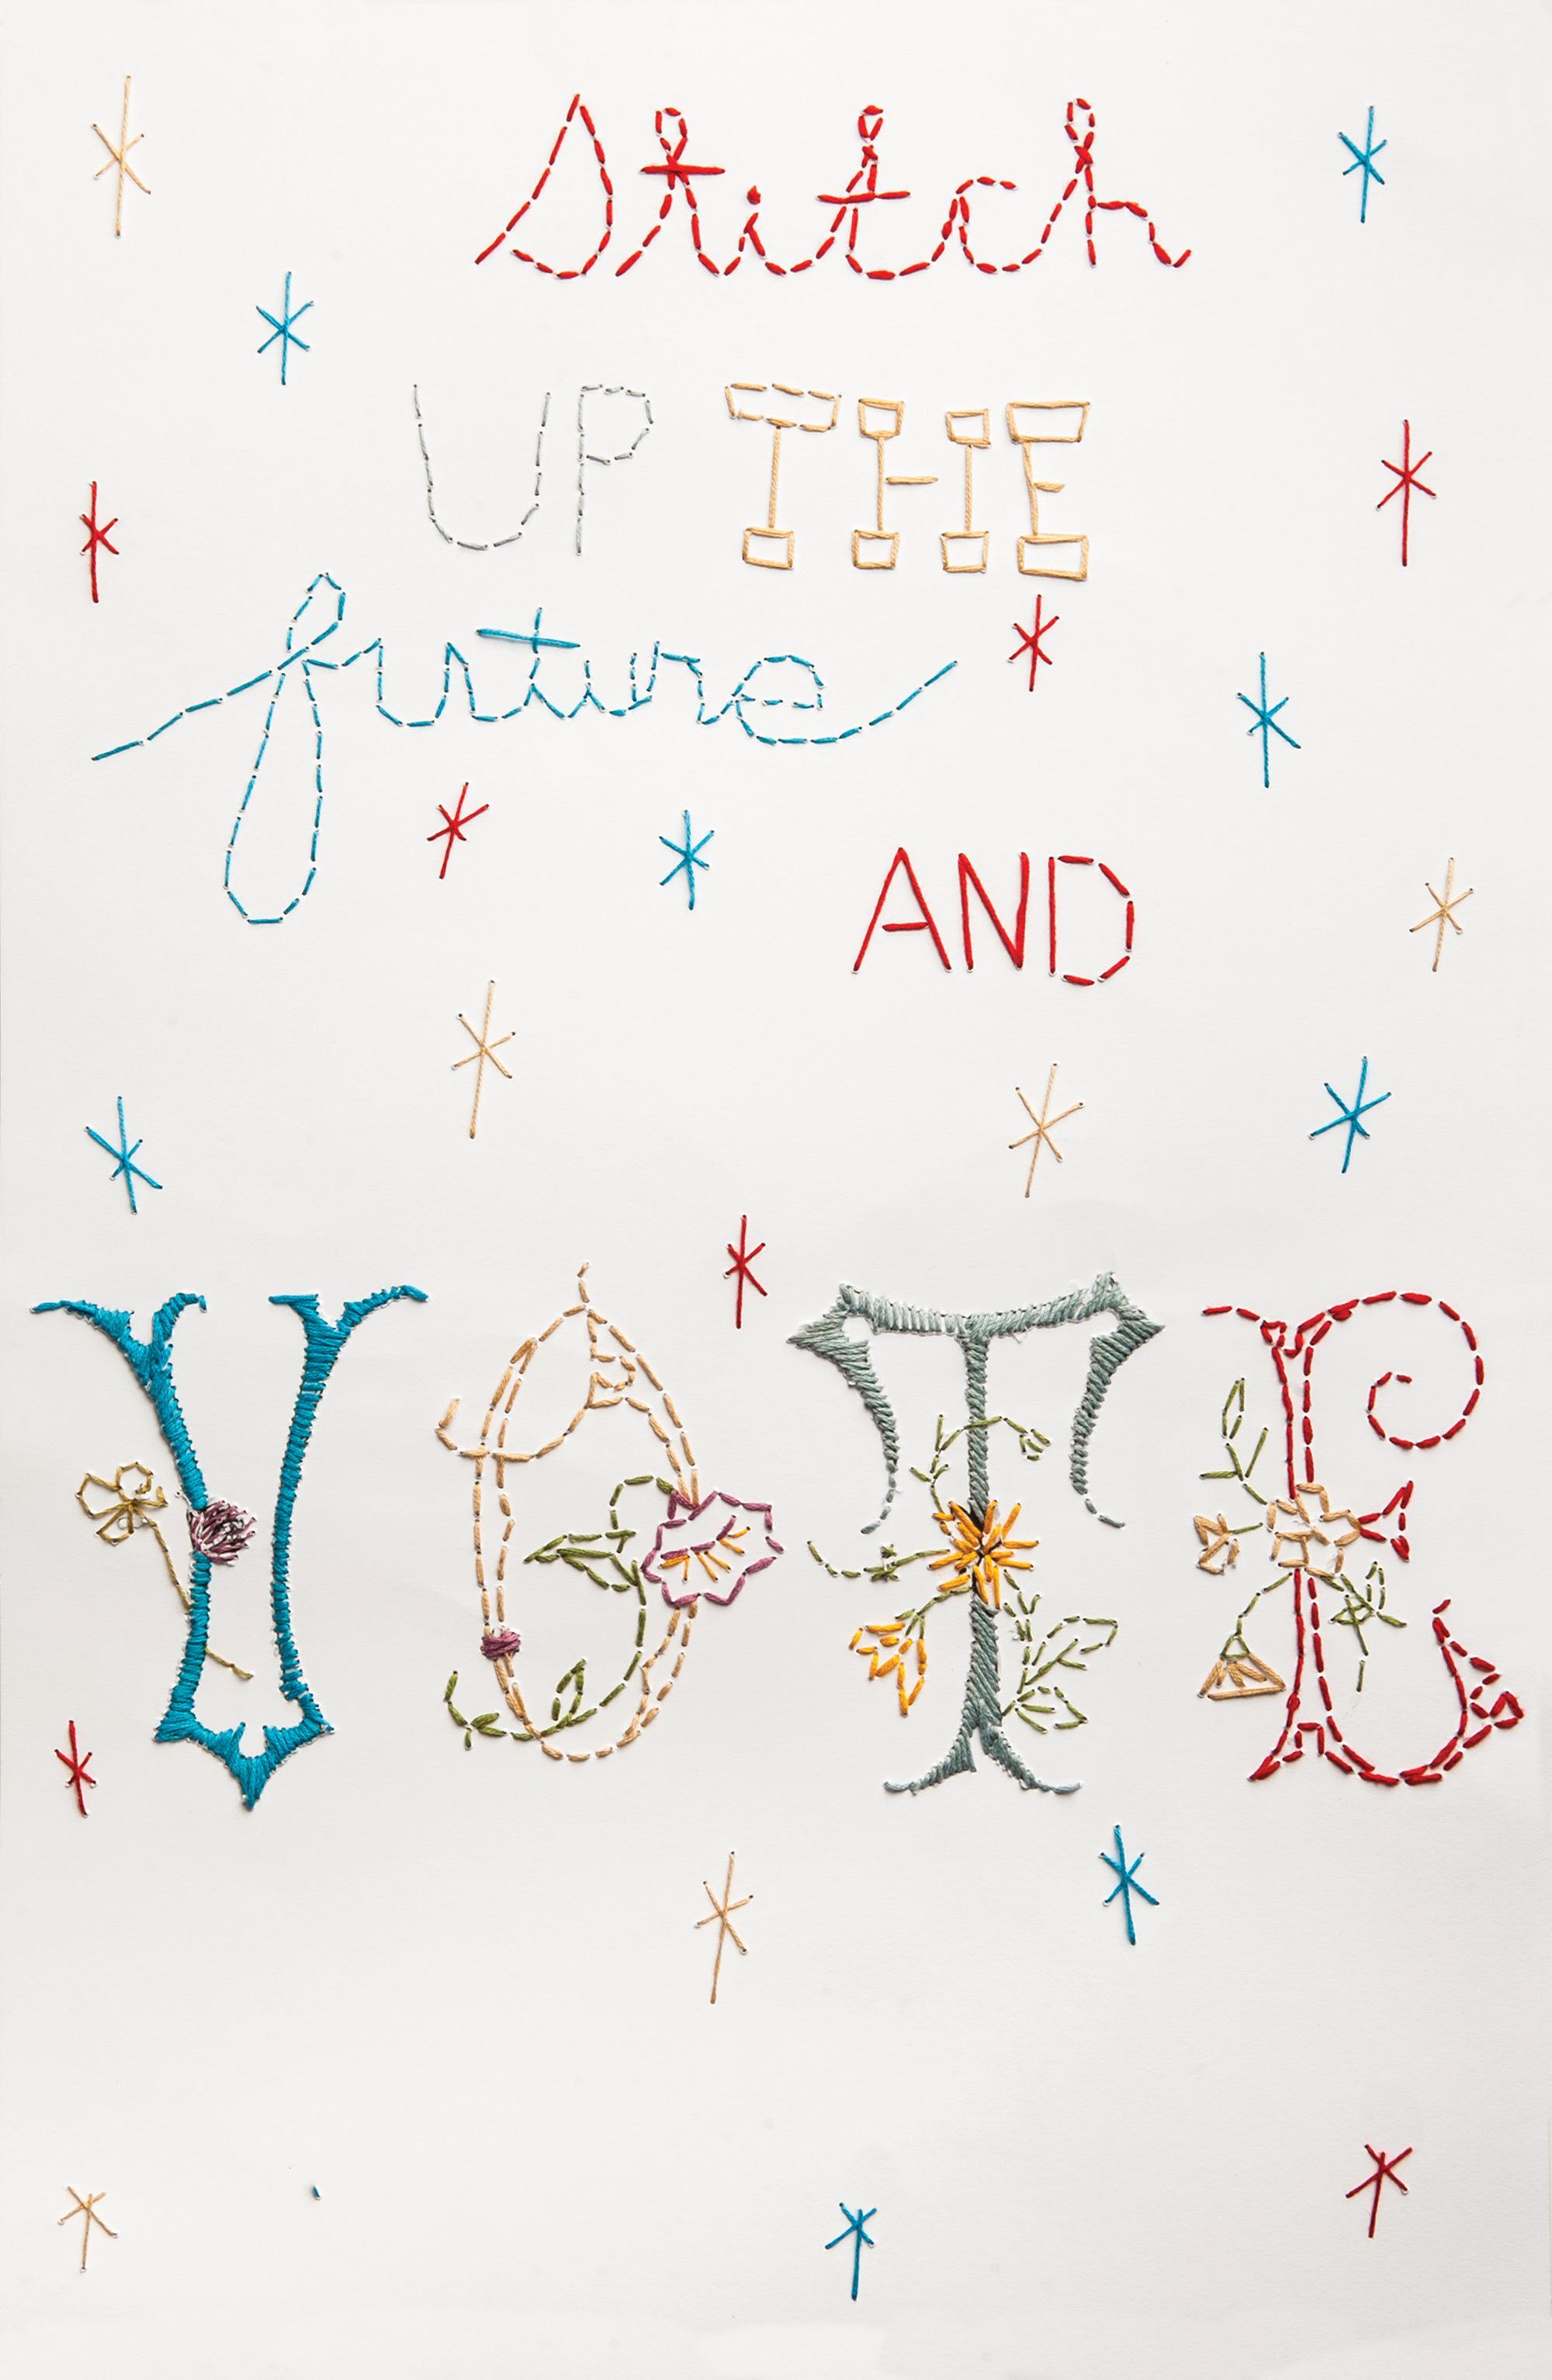 Stitch
UP THE
future
AND
VOTE